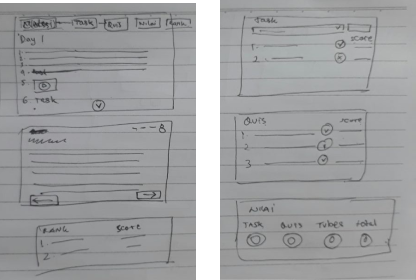 Task Quis Nilai Rank
Day 1
1.
2.
3.
4.
5.
6. Task
RANK Score
1.
2.
Task
score
1.
2.
Quis score
1
2
3
Nilai
Task Quis Tubes total